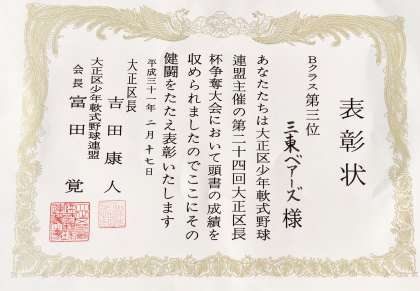 表彰状
Bクラス第三位
三東ベアーズ 様
あなたたちは大正区少年軟式野球
連盟主催の第二十四回大正区長
杯争奪大会において頭書の成績を
収められましたのでここにその
健闘をたたえ表彰いたします
平成三十一年 二月 十七日
大正区長
吉田康人
大正区少年軟式野球連盟
会長 富田 覚